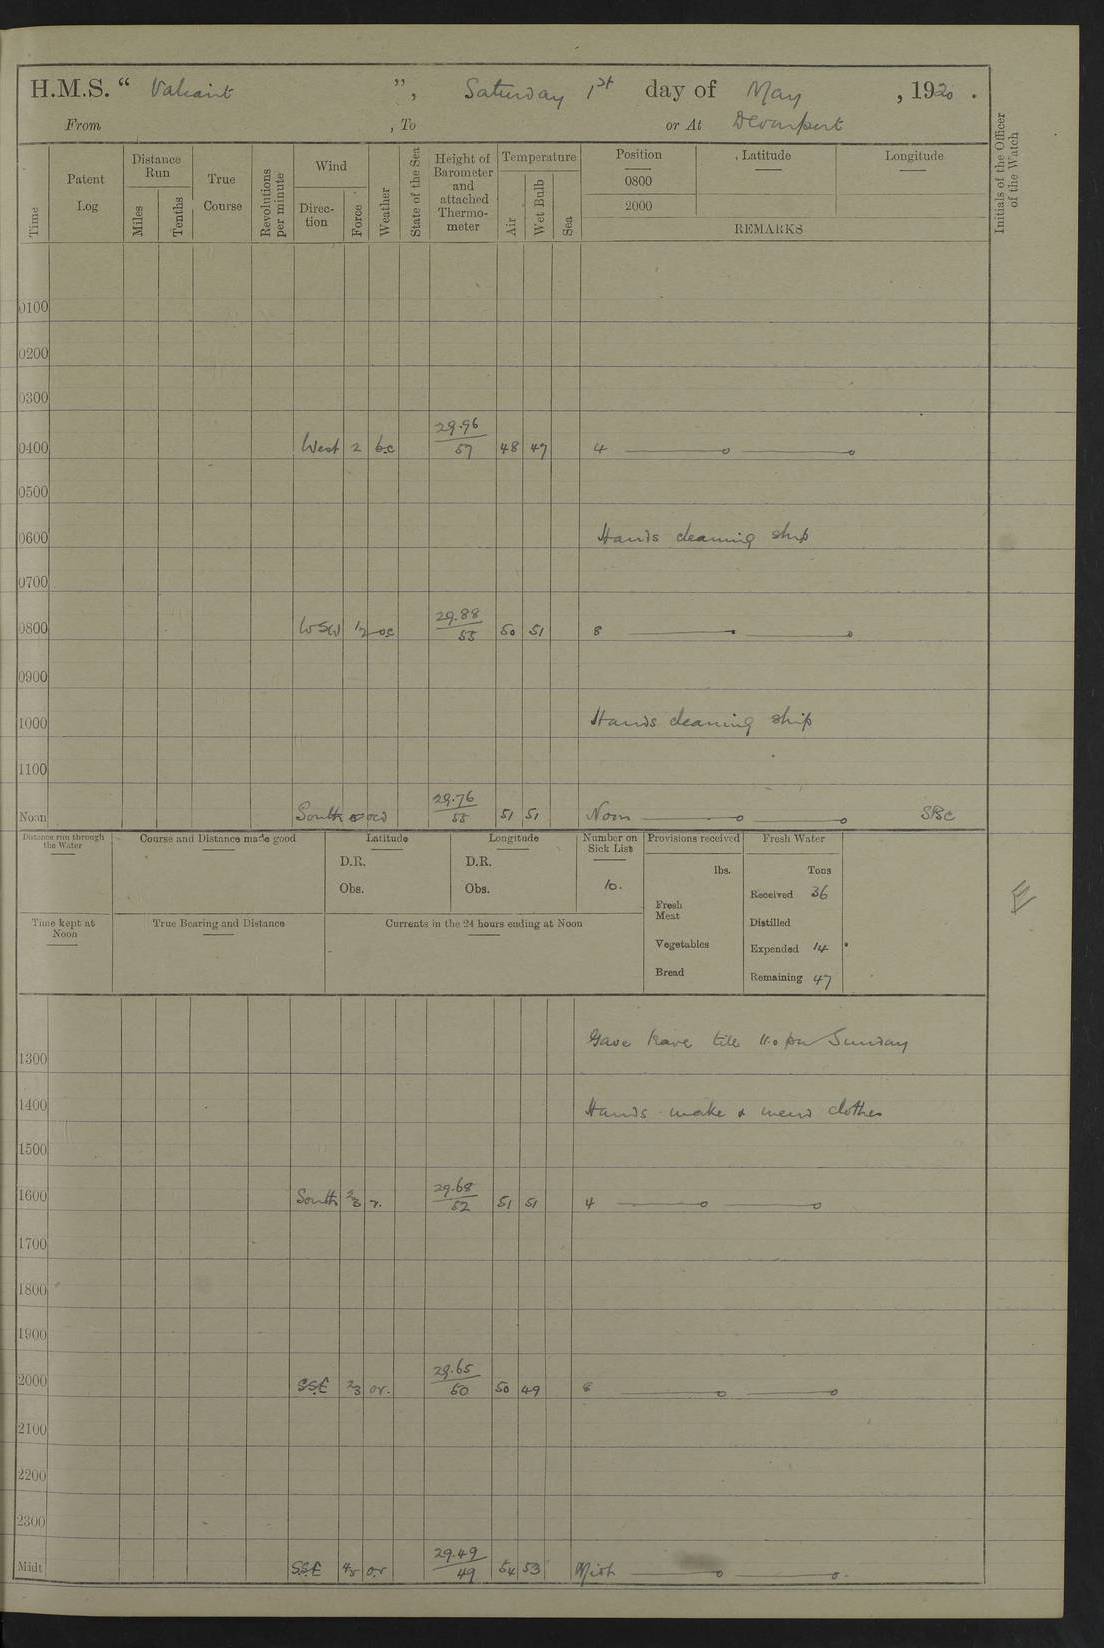 H.M.S. “ Valiant ”, Saturday 1st day of May , 1920 .
From , To or At Devonport
Time Patent Log Distance Run Miles Tenths True Course Revolutions per minute Wind Direc- tion Force Weather State of the Sea Height of Barometer and attached Thermo- meter Temperature Air Wet Bulb Sea Position Latitude Longitude Initials of the Officer of the Watch
0800
2000
REMARKS
0100
0200
0300
0400 West 2 bc 29.96 57 48 47 4
0500
0600 Hands cleaning ship
0700
0800 WSW 1/2 oc 29.88 55 50 51 8
0900
1000 Hands cleaning ship
1100
Noon South 29.76 55 51 51 Noon
Distance run through the Water Course and Distance made good Latitude Longitude Number on Sick List Provisions received Fresh Water
D.R. D.R. lbs. Tons
Obs. Obs. 10. Received 36
Fresh Meat Distilled
Time kept at Noon True Bearing and Distance Currents in the 24 hours ending at Noon
Vegetables Expended 14
Bread Remaining 47
Gave leave till 11.0 pm Sunday
1300
1400 Hands make & mend clothes
1500
1600 South 2/3 r. 29.68 52 51 51 4
1700
1800
1900
2000 SSE 2/3 or. 29.65 50 50 49 8
2100
2200
2300
Midt SSE 4/5 or 29.49 49 54 53